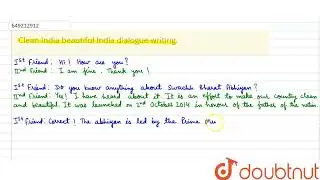 649212912
Clean india beautiful India dialogue writing
Ist Friend: Hi! How are you?
IInd Friend: I am fine. Thank you!
Ist Friend: Do you know anything about Swachh Bharat Abhiyan?
IInd Friend: Yes! I have heard about it. It is an effort to make our country clean
and beautiful. It was launched on 2nd October 2014 in honour of the father of the nation.
Ist Friend: Correct! The abhiyan is led by the Prime
doubtnut